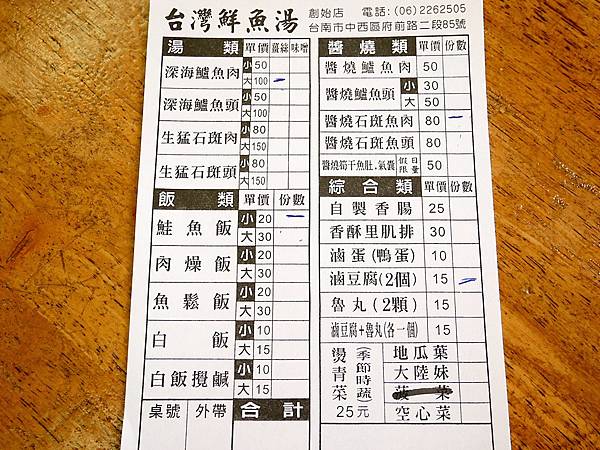 台灣鮮魚湯 創始店 電話:(06)2262505
台南市中西區府前路二段85號
湯類 單價 薑絲 味噌
深海鱸魚肉 小 50
大 100
深海鱸魚頭 小 50
大 100
生猛石斑肉 小 80
大 150
生猛石斑頭 小 80
大 150
飯類 單價 份數
鮭魚飯 小 20
大 30
肉燥飯 小 20
大 30
魚鬆飯 小 20
大 30
白飯 小 10
大 15
白飯攪鹹 小 10
大 15
桌號 外帶 合計
醬燒類 單價 份數
醬燒鱸魚肉 50
醬燒鱸魚頭 小 30
大 50
醬燒石斑魚肉 80
醬燒石斑魚頭 50
醬燒筍干魚肚.氣囊 假日限量 50
綜合類 單價 份數
自製香腸 25
香酥里肌排 30
滷蛋(鴨蛋) 10
滷豆腐(2個) 15
魯丸(2顆) 15
滷豆腐+魯丸(各一個) 15
燙青菜 (季節時蔬) 25元
地瓜葉
大陸妹
菠菜
空心菜